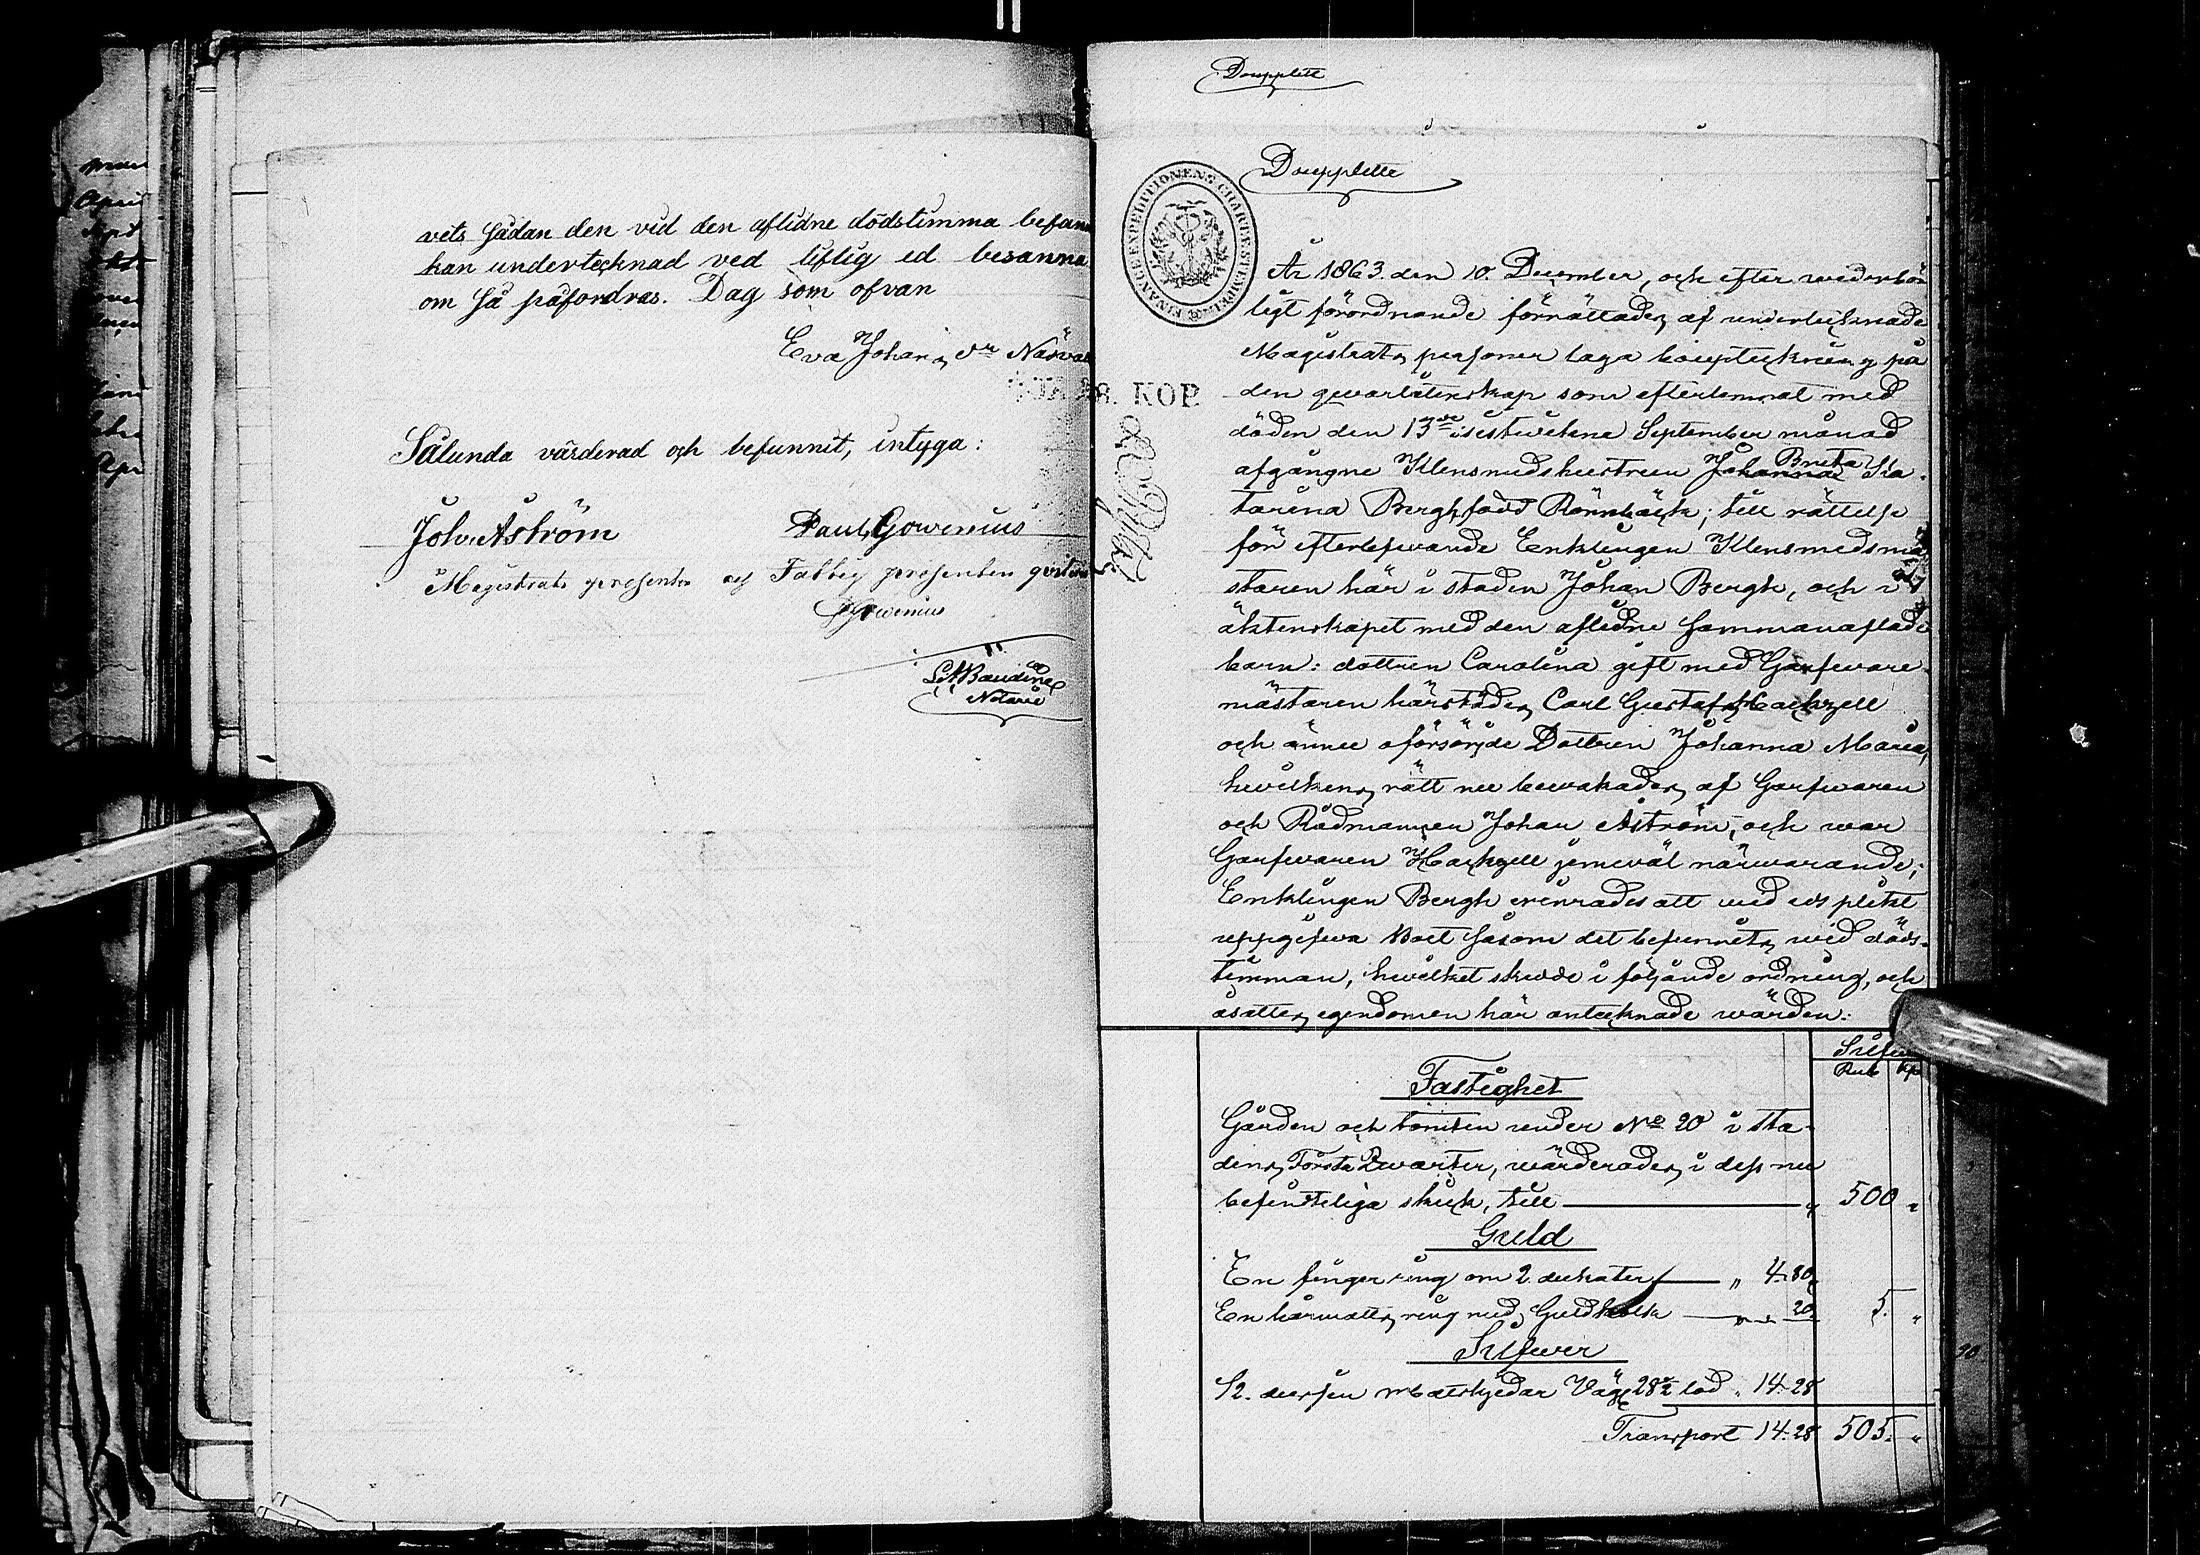 vets sådan den vid den aflidne dödstimma befann
kan undertecknad ved liflig ed besanna
om så påfordras. Dag som ofvan
Eva Johans dr Näsvall
Sålunda värderad och befunnit, intyga:
Joh. Aström
Paul Gowenius
Magistrats presenter
af Fattig presenten qvitteras
PGowenius
Notarie
Doupplett
Doupplette
FINANCE EXPEDITIONENS CHARTÆ STEMPEL
28. KOP.
År 1863 den 10. December, och efter wederbör-
ligt förordnande förrättades af undertecknade
Magistrats personer laga bouptekning på
den qwarlåtenskap som efterlemnat med
döden den 13de i sistwekne September månad
afgångne Klensmedshustrun Johanna Brita Ka-
tarina Bergh, född Rönnbäck; till rättelse
för efterlefwande Enklingen Klensmedsmä-
staren här i staden Johan Bergh, och i
äktenskapet med den aflidne sammanaflade
barn: dottren Carolina gift med Garfware-
mästaren härstädes Carl Gustaf Hackzell
och ännu oförsörjde Dottren Johanna Maria,
hwilkens rätt nu bewakades af Garfwaren
och Rådmannen Johan Åström, och war
Garfwaren Hackzell jemwäl närwarande;
Enklingen Bergh erinrades att wid eds plikt
uppgifwa Boet såsom det befunnits wid döds-
timman, hwilket skedde i följande ordning, och
åsattes egendomen här antecknade wärden:
Silfwer
Rub Kp
Fastighet
Gården och tomten under No 20 i sta-
dens Första Qwarter, wärderades i dess nu
befinteliga skick, till 500 "
Guld
En fingerring om 2 dukater " 4.80
En hårmatts ring med Guldhalk " 20. 5. "
Silfwer
12. dussin Matskedar Väga 28½ lod " 14.28
Transport 14.28 505. "